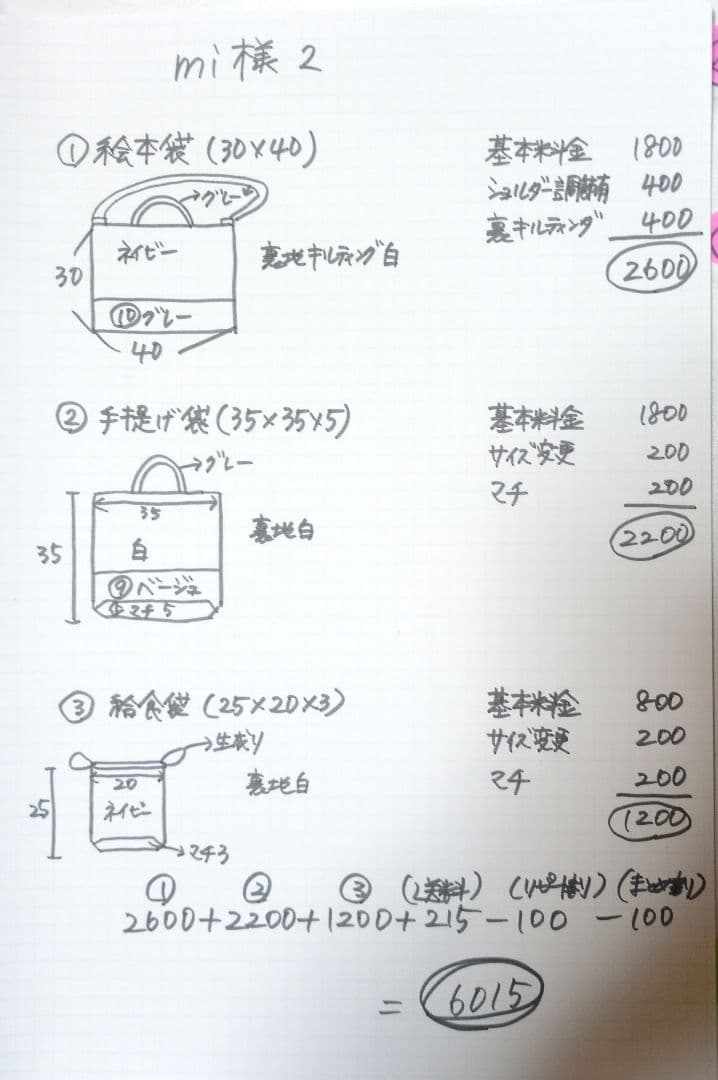 mi様 2
① 絵本袋 (30×40)
グレー
ネイビー
30
⑩ グレー
40
裏地キルティング白
基本料金 1800
ショルダー調節有 400
裏キルティング 400
2600
② 手提げ袋 (35×35×5)
グレー
35
35
白
⑨ ベージュ
マチ 5
裏地白
基本料金 1800
サイズ変更 200
マチ 200
2200
③ 給食袋 (25×20×3)
生成り
20
25
ネイビー
マチ3
裏地白
基本料金 800
サイズ変更 200
マチ 200
1200
① ② ③ (送料) (リピート割り) (まとめ割り)
2600+2200+1200+215-100 -100
= 6015